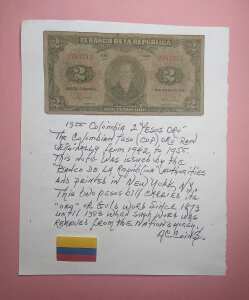 EL BANCO DE LA REPUBLICA
2
2
1955 Colombia 2 "Pesos Oro"
The Colombian Peso (COP) Oro Ran
Originally from 1942 to 1955.
This note was issued by the
"Banco de la Republica" authorities
and printed in New York, NY.
This two pesos bill carries its
"Oro" or Gold word since 1873
until 1993 when such word was
removed from the nation's money.